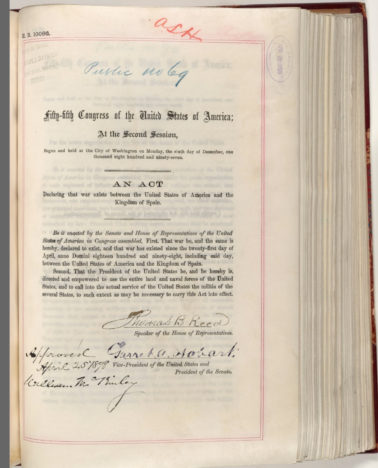 H. R. 10086.
ASH
Public No 69
Fifty-fifth Congress of the United States of America;
At the Second Session,
Begun and held at the City of Washington on Monday, the sixth day of December, one
thousand eight hundred and ninety-seven.
AN ACT
Declaring that war exists between the United States of America and the
Kingdom of Spain.
Be it enacted by the Senate and House of Representatives of the United
States of America in Congress assembled, First. That war be, and the same is
hereby, declared to exist, and that war has existed since the twenty-first day of
April, anno Domini eighteen hundred and ninety-eight, including said day,
between the United States of America and the Kingdom of Spain.
Second. That the President of the United States be, and he hereby is,
directed and empowered to use the entire land and naval forces of the United
States, and to call into the actual service of the United States the militia of the
several States, to such extent as may be necessary to carry this Act into effect.
Thomas B. Reed
Speaker of the House of Representatives.
Garret A. Hobart.
Vice-President of the United States and
President of the Senate.
Approved
April 25 1898
William McKinley